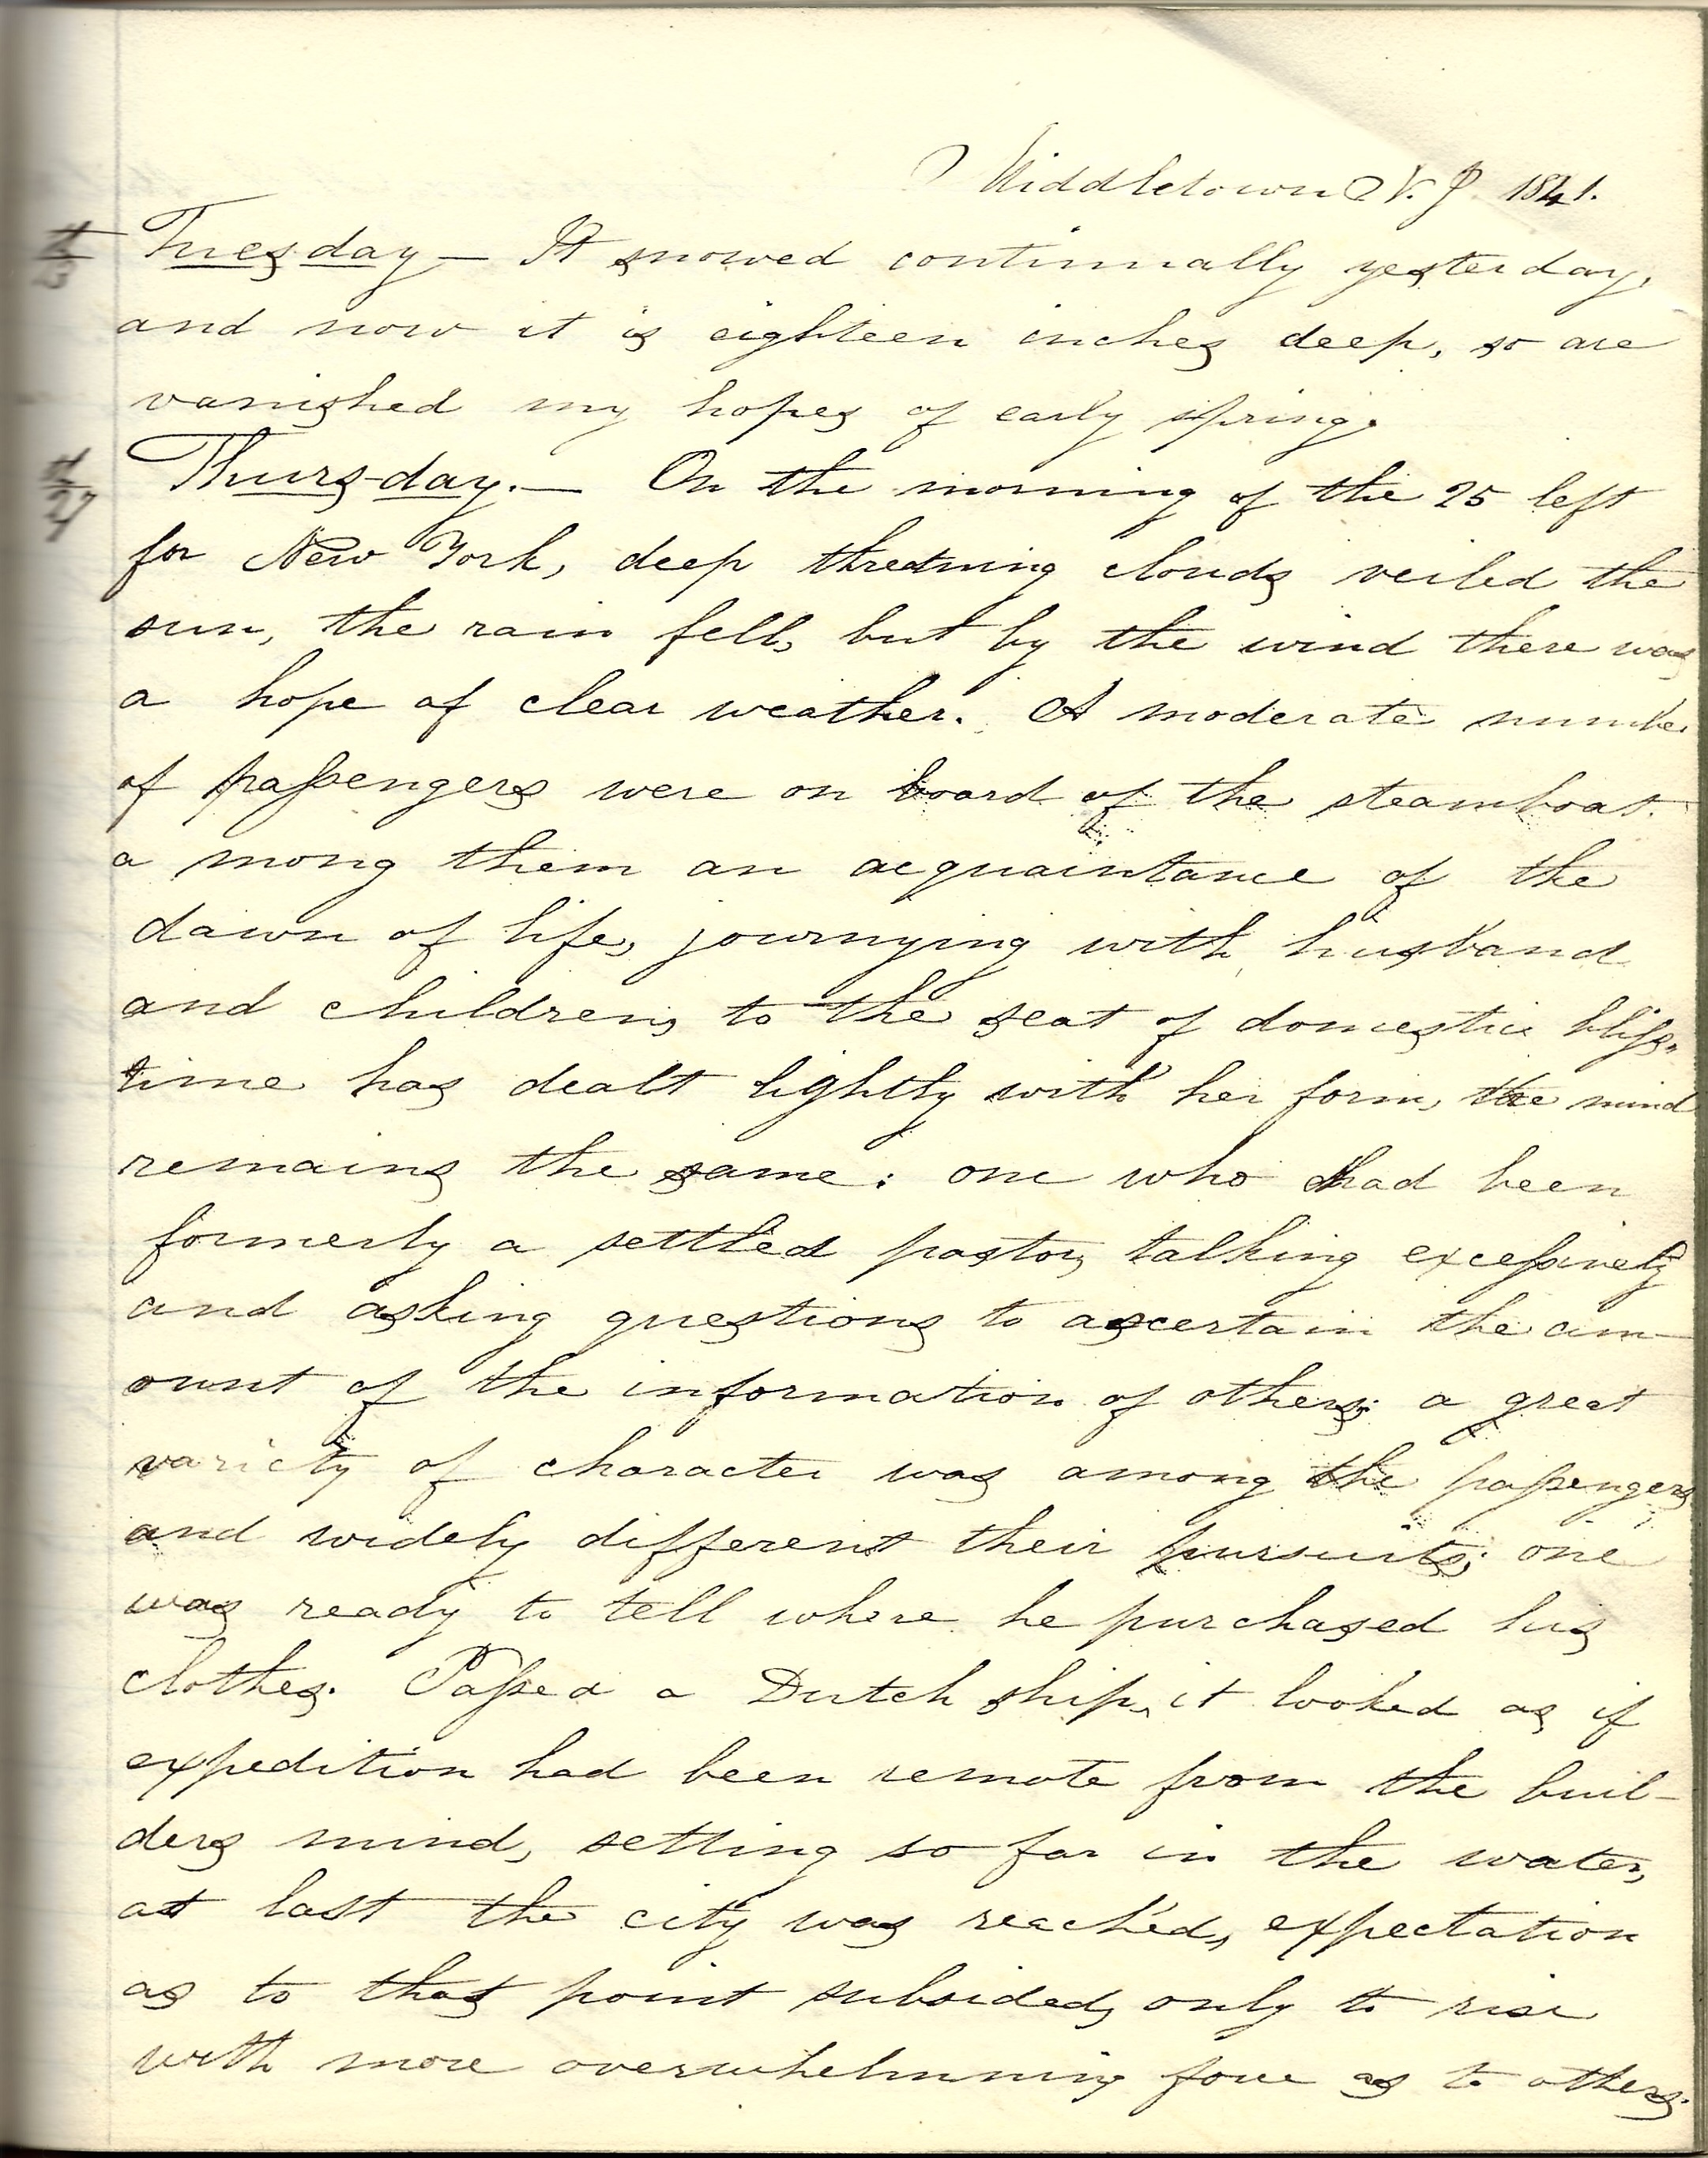 Middletown N. J. 1841.
Tuesday — It snowed continually yesterday,
and now it is eighteen inches deep, so are
vanished my hopes of early spring.
Thursday. — On the morning of the 25 left
for New York, deep thretning clouds veiled the
sun, the rain fell, but by the wind there was
a hope of clear weather. A moderate number
of passengers were on board of the steamboat.
a mong them an acquaintance of the
dawn of life, journying with husband
and children, to the seat of domestic bliss,
time has dealt lightly with her form, the mind
remains the same: one who had been
formerly a settled pastor, talking excessively
and asking questions to ascertain the am-
ount of the information of others; a great
variety of character was among the passengers
and widely different their pursuits; one
was ready to tell where he purchased his
clothes. Passed a Dutch ship, it looked as if
expedition had been remote from the buil-
ders mind, setting so far in the water,
at last the city was reached, expectation
as to that point subsided, only to rise
with more overwhelming force as to others.